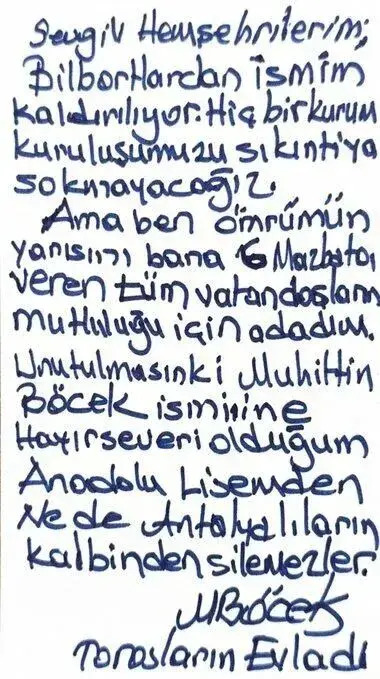 Sevgili Hemşehrilerim;
Bilbortlardan ismim
kaldırılıyor. Hiç bir kurum
kuruluşumuzu sıkıntıya
sokmayacağız.
Ama ben ömrümün
yarısını bana 6 Mazbata
veren tüm vatandaşların
mutluluğu için adadım.
Unutulmasınki Muhittin
Böcek ismini ne
Hayırseveri olduğum
Anadolu Lisemden
Ne de Antalyalıların
kalbinden silemezler.
MBöcek
Torosların Evladı